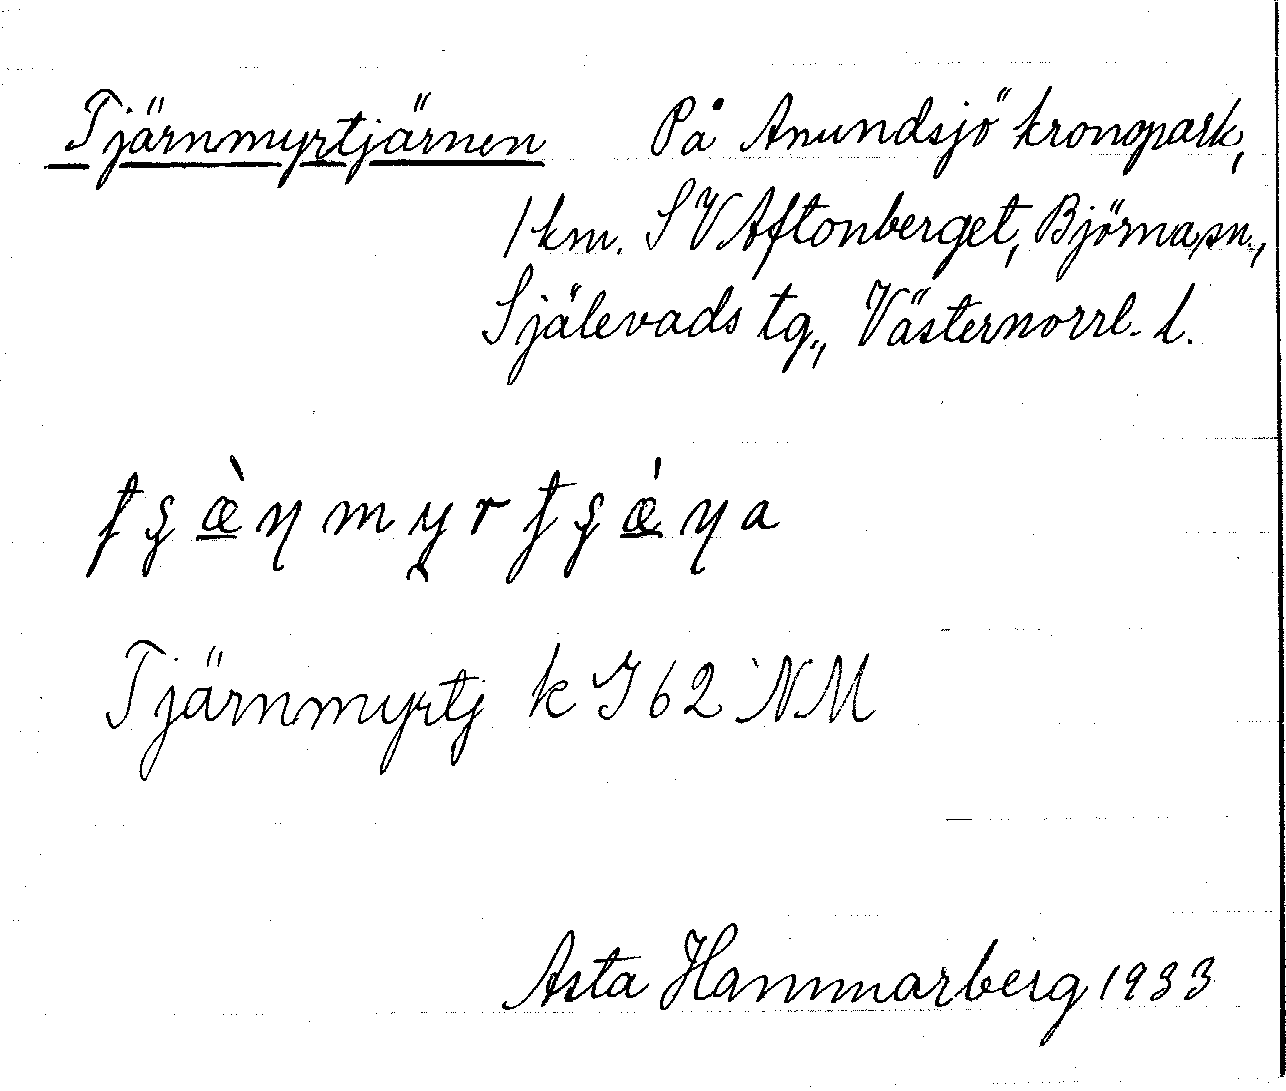 Tjärnmyrtjärnen På Anundsjö kronopark,
1 km. SV Aftonberget, Björna sn.,
Själevads tg., Västernorrl. l.
Tjärnmyrtj k J 62 NM
Asta Hammarberg 1933